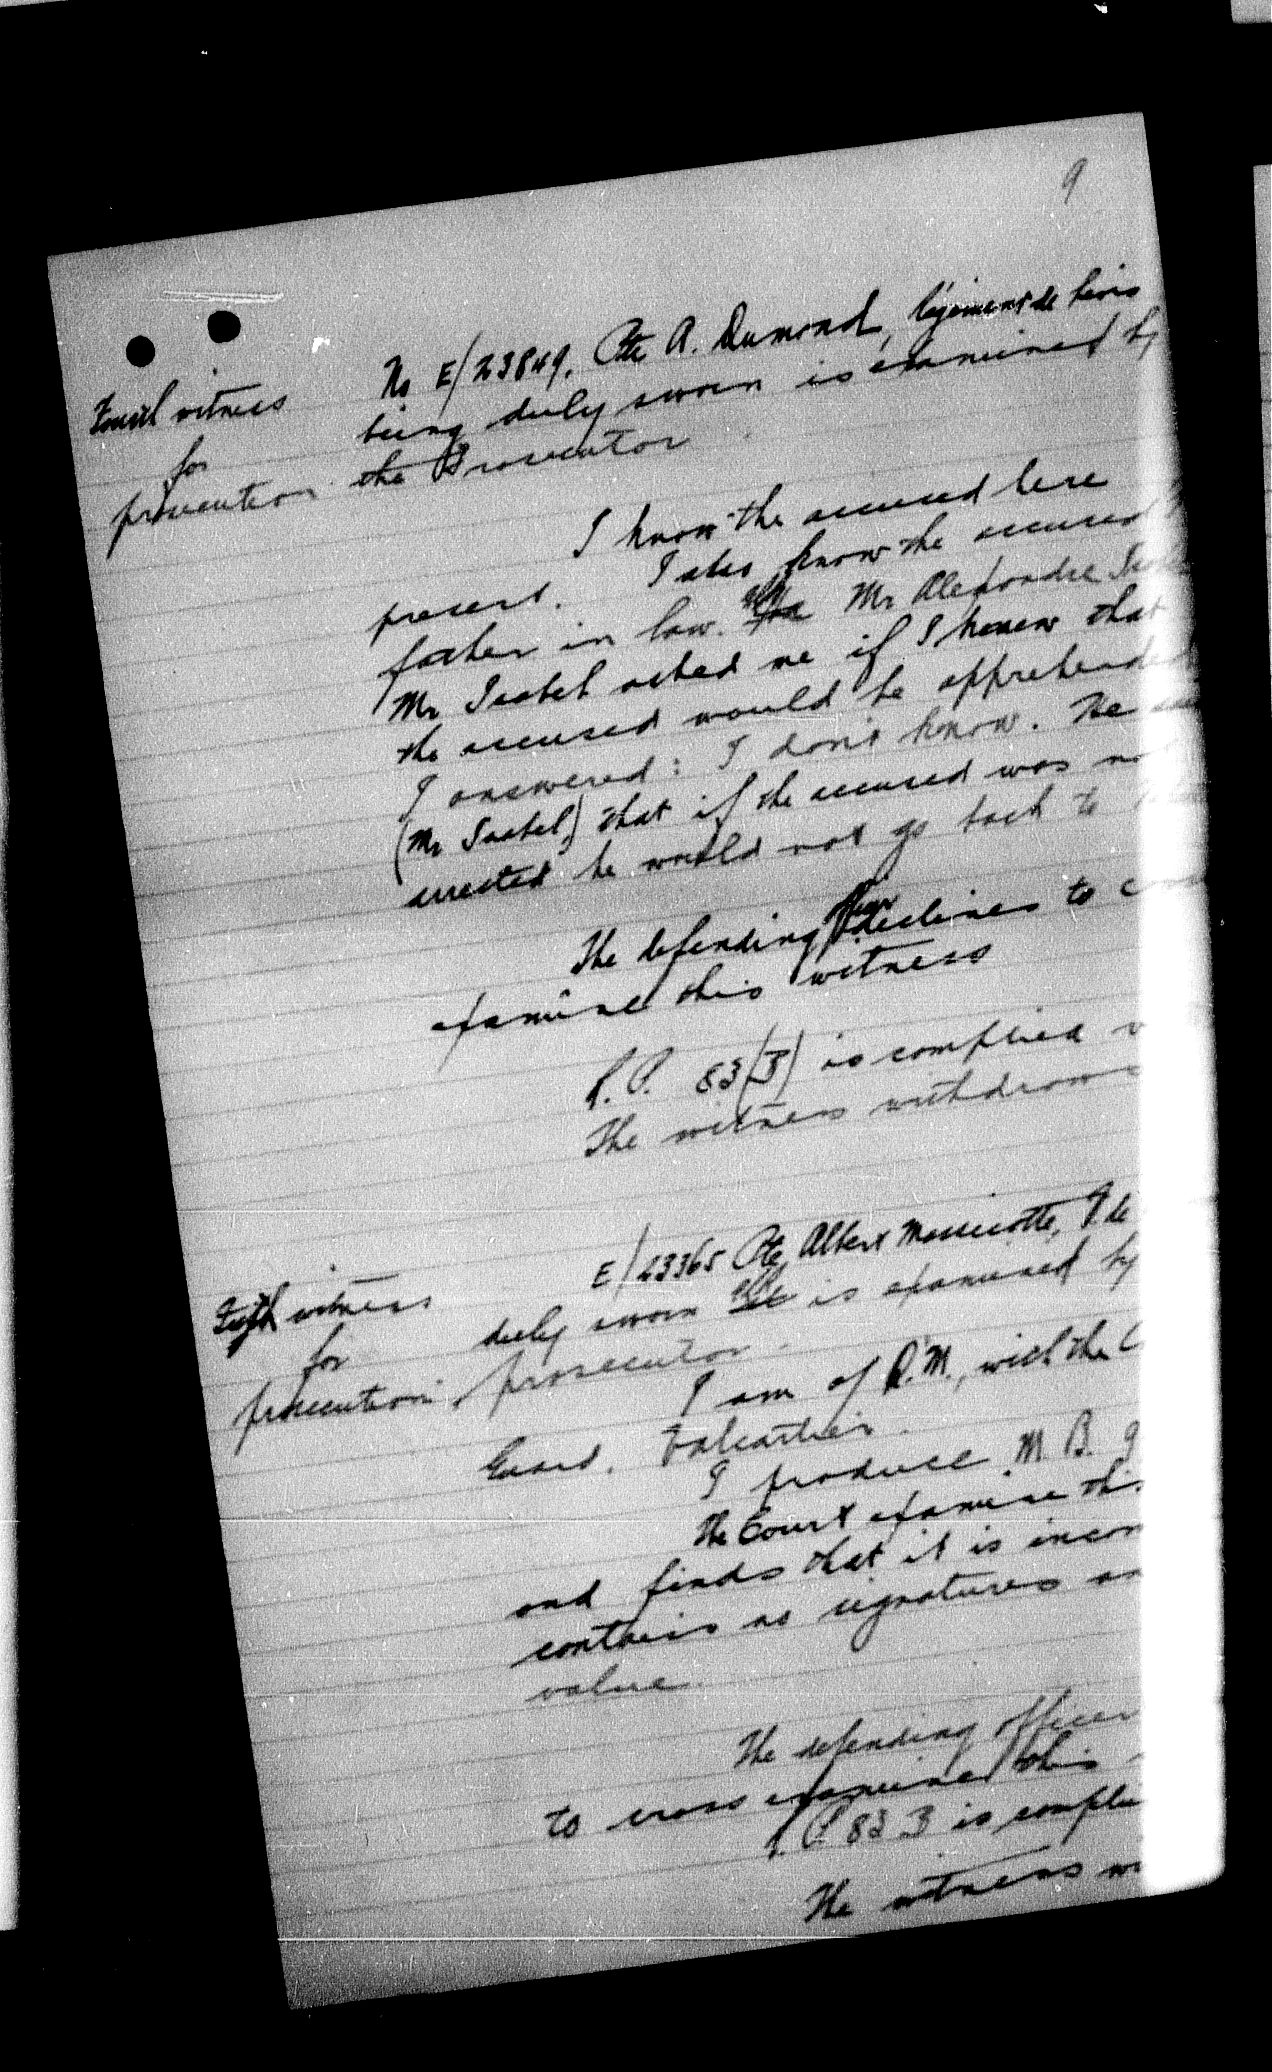 9
No E/23849, Pte A. Dumond, Régiment de Lévis
Fourth witness
for
prosecution
being duly sworn is examined by
the Prosecutor
I know the accused here
present. I also know the accused
father in law. Mr Alexandre
Mr Isabel asked me if I knew that
the accused would be apprehended
I answered: I don't know. He
(Mr Isabel) that if the accused was
arrested he would not go back to
The defending officer declines to
examine this witness
R.P. 83(B) is complied
The witness withdraws
Fifth witness
for
prosecution
E/23365 Pte Albert Massicotte, R de
duly sworn is examined by
prosecutor.
I am of R.M., with the
Guard, Valcartier.
I produce M.B.
The Court examine this
and finds that it is
contains no signatures
value.
The defending officer
to cross examine this
R.P. 83 B is
The witness